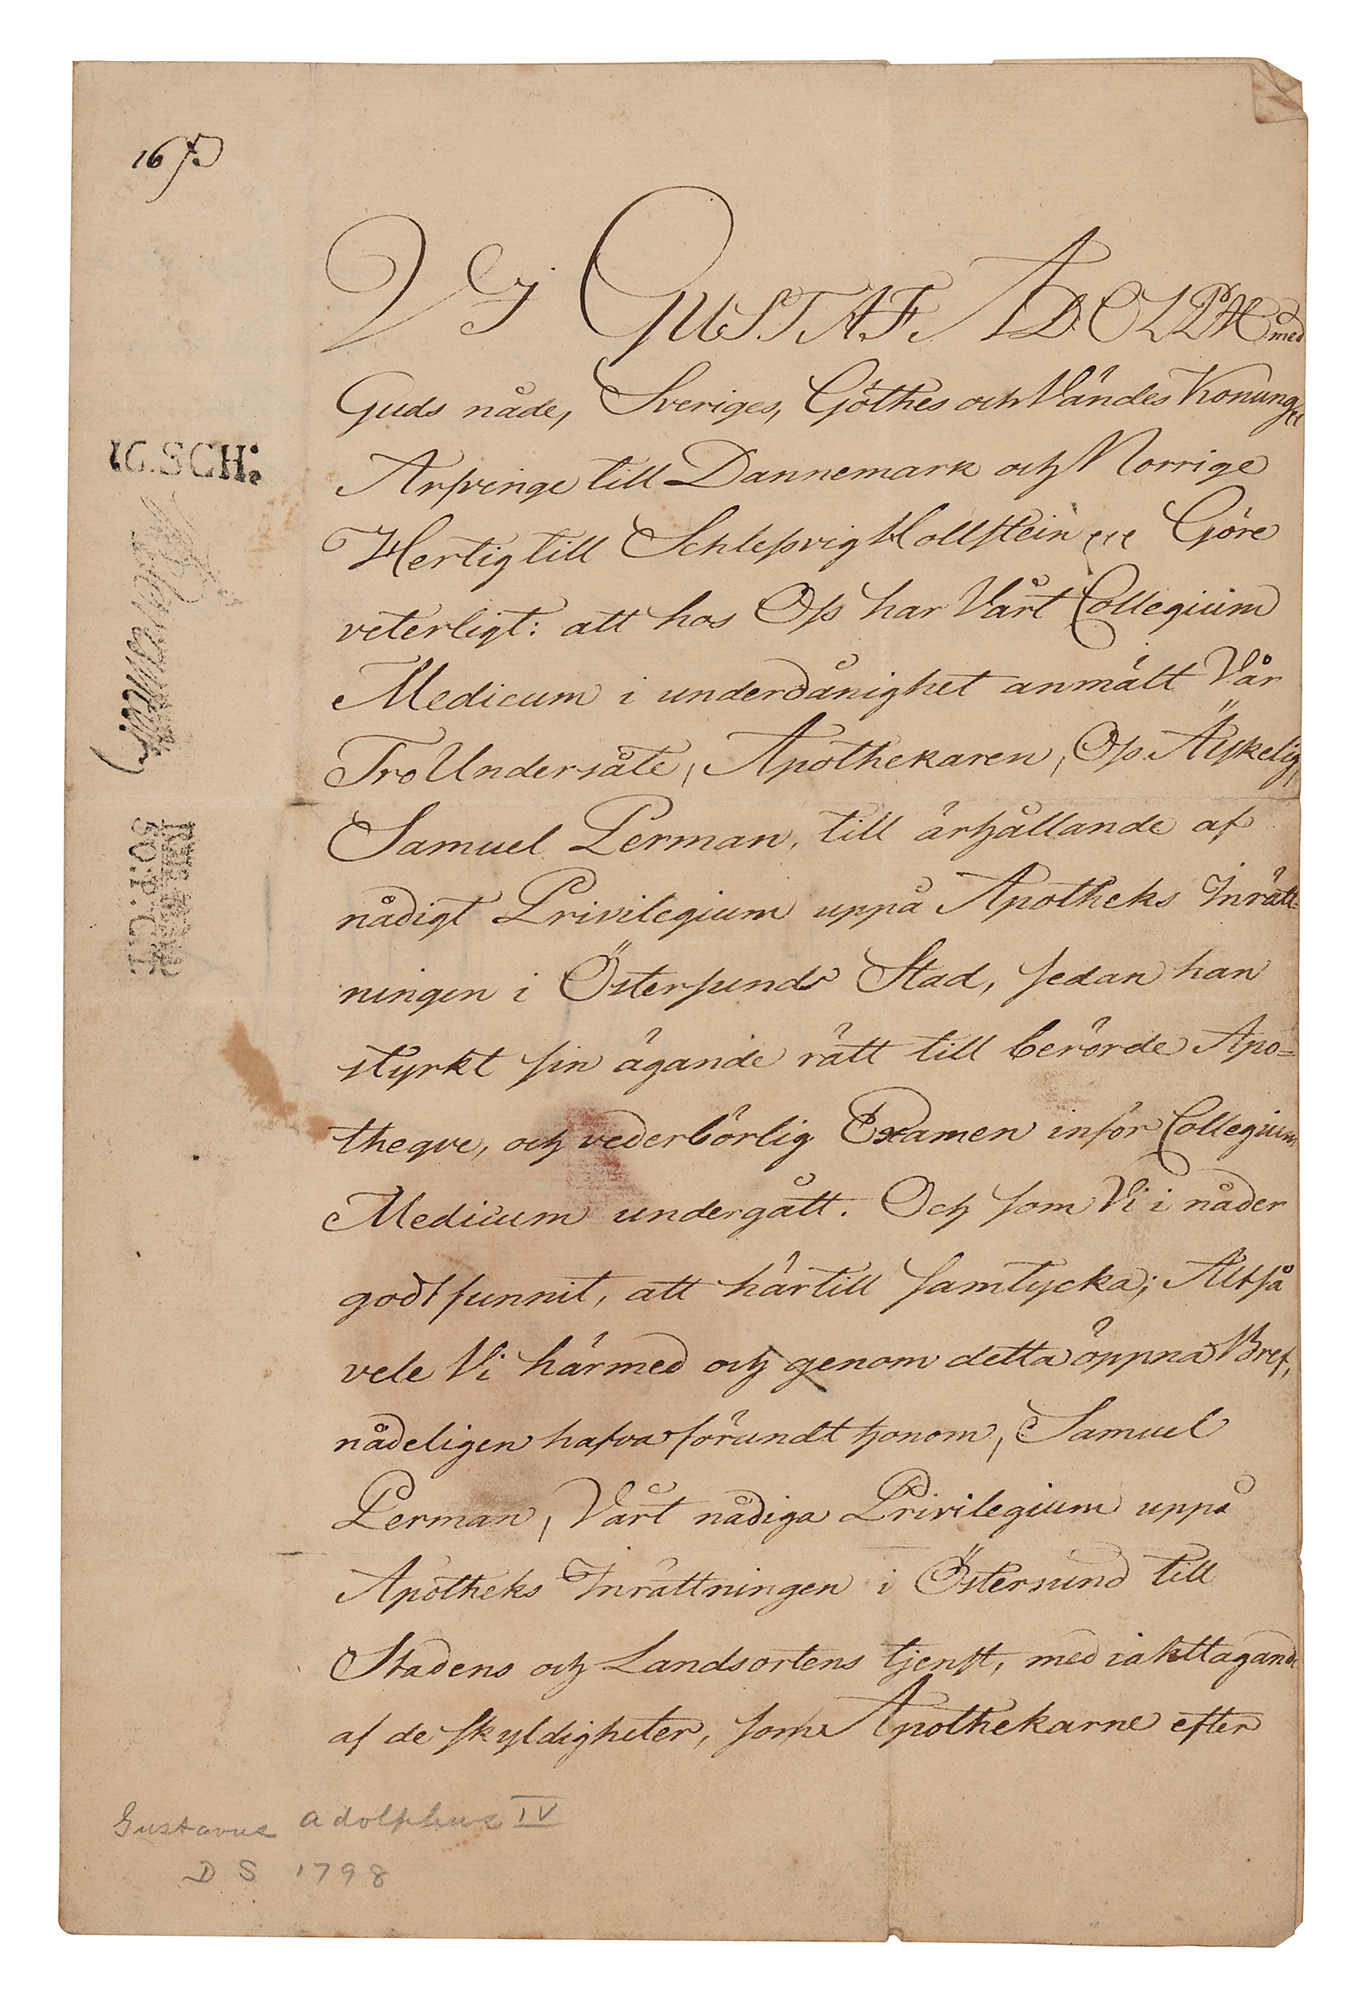 16 ß
VJ GUSTAF ADOLPH med
Guds nåde, Sveriges, Göthes och Vändes Konung etc
Arfvinge till Dannemark och Norrige
Hertig till Schlesvig Hollstein etc Göre
veterligt: att hos Oss har Vårt Collegium
Medicum i underdånighet anmält Vår
Tro Undersåte, Apothekaren, Oss Älskelig,
Samuel Perman, till ärhållande af
nådigt Privilegium uppå Apotheks Inrätt-
ningen i Östersunds Stad, sedan han
styrkt sin ägande rätt till berörde Apo=
theqve, och vederbörlig Examen inför Collegium
Medicum undergått. Och som Vi i nåder
godtfunnit, att härtill samtycka; Altså
vele Vi härmed och genom detta öppna Bref,
nådeligen hafva förundt honom, Samuel
Perman, Vårt nådiga Privilegium uppå
Apotheks Inrättningen i Östersund till
Stadens och Landsortens tjenst, med iakttagande
af de skyldigheter, som Apothekarne efter
16.SCH:
SO.P.C.T.
Gustavus Adolphus IV
D S 1798